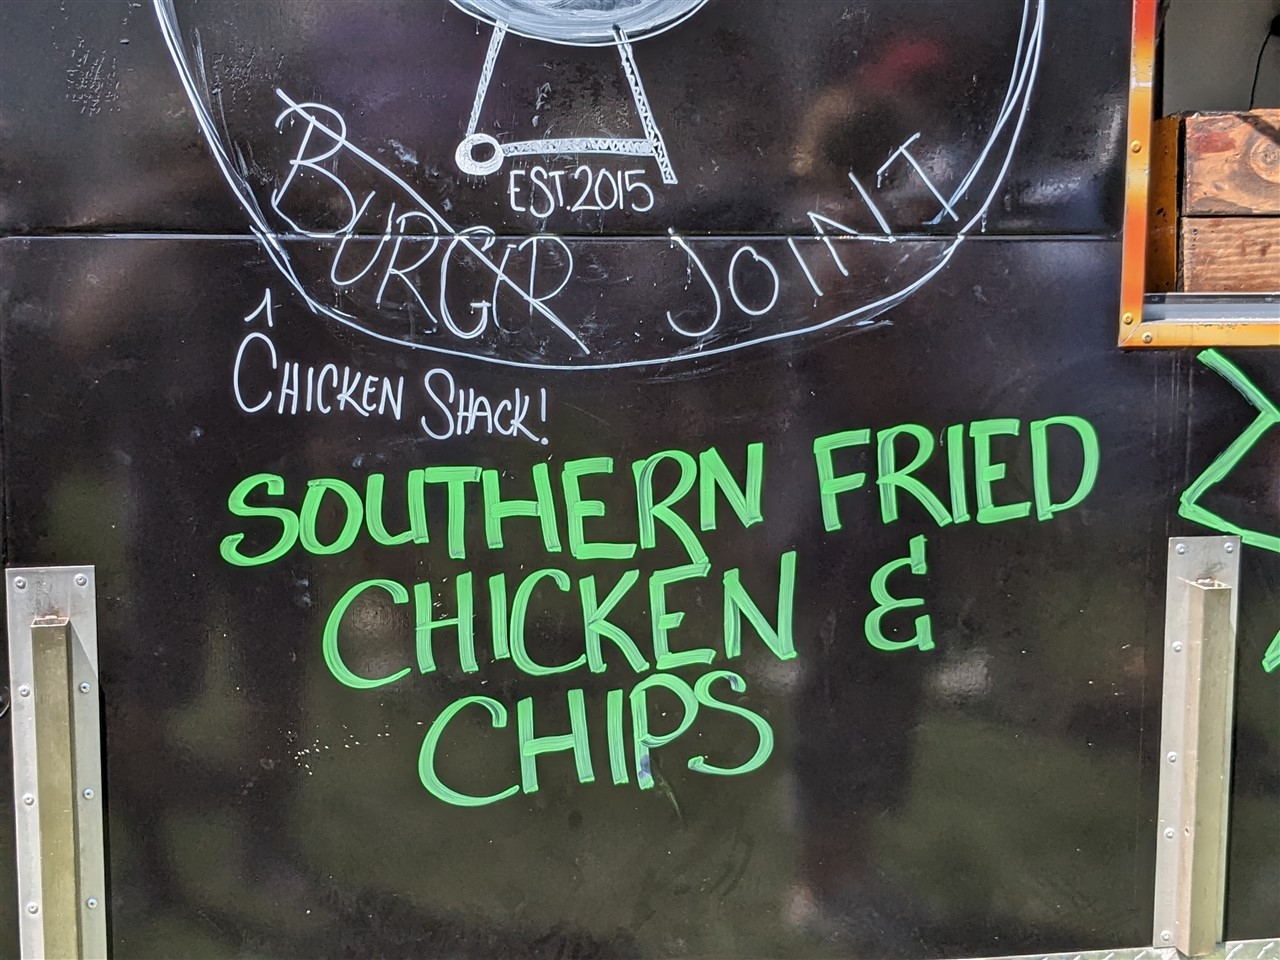 EST. 2015
BURGER JOINT
^
CHICKEN SHACK!
SOUTHERN FRIED
CHICKEN &
CHIPS